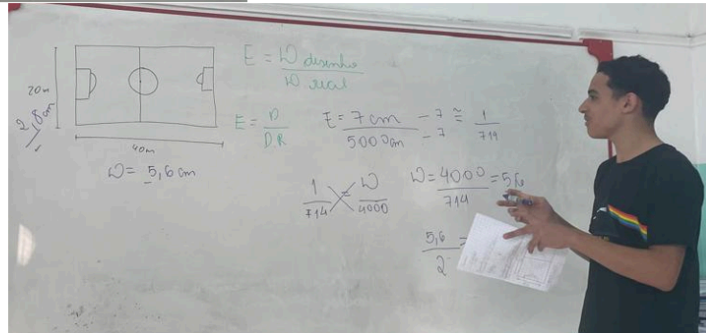 20m
2,8cm
40m
D = 5,6 cm
E = D desenho
D real
E = D
D.R
E = 7 cm - 7 ≅ 1
5000cm - 7 714
1 = D
714 4000
D = 4000 = 5,6
714
5,6 =
2